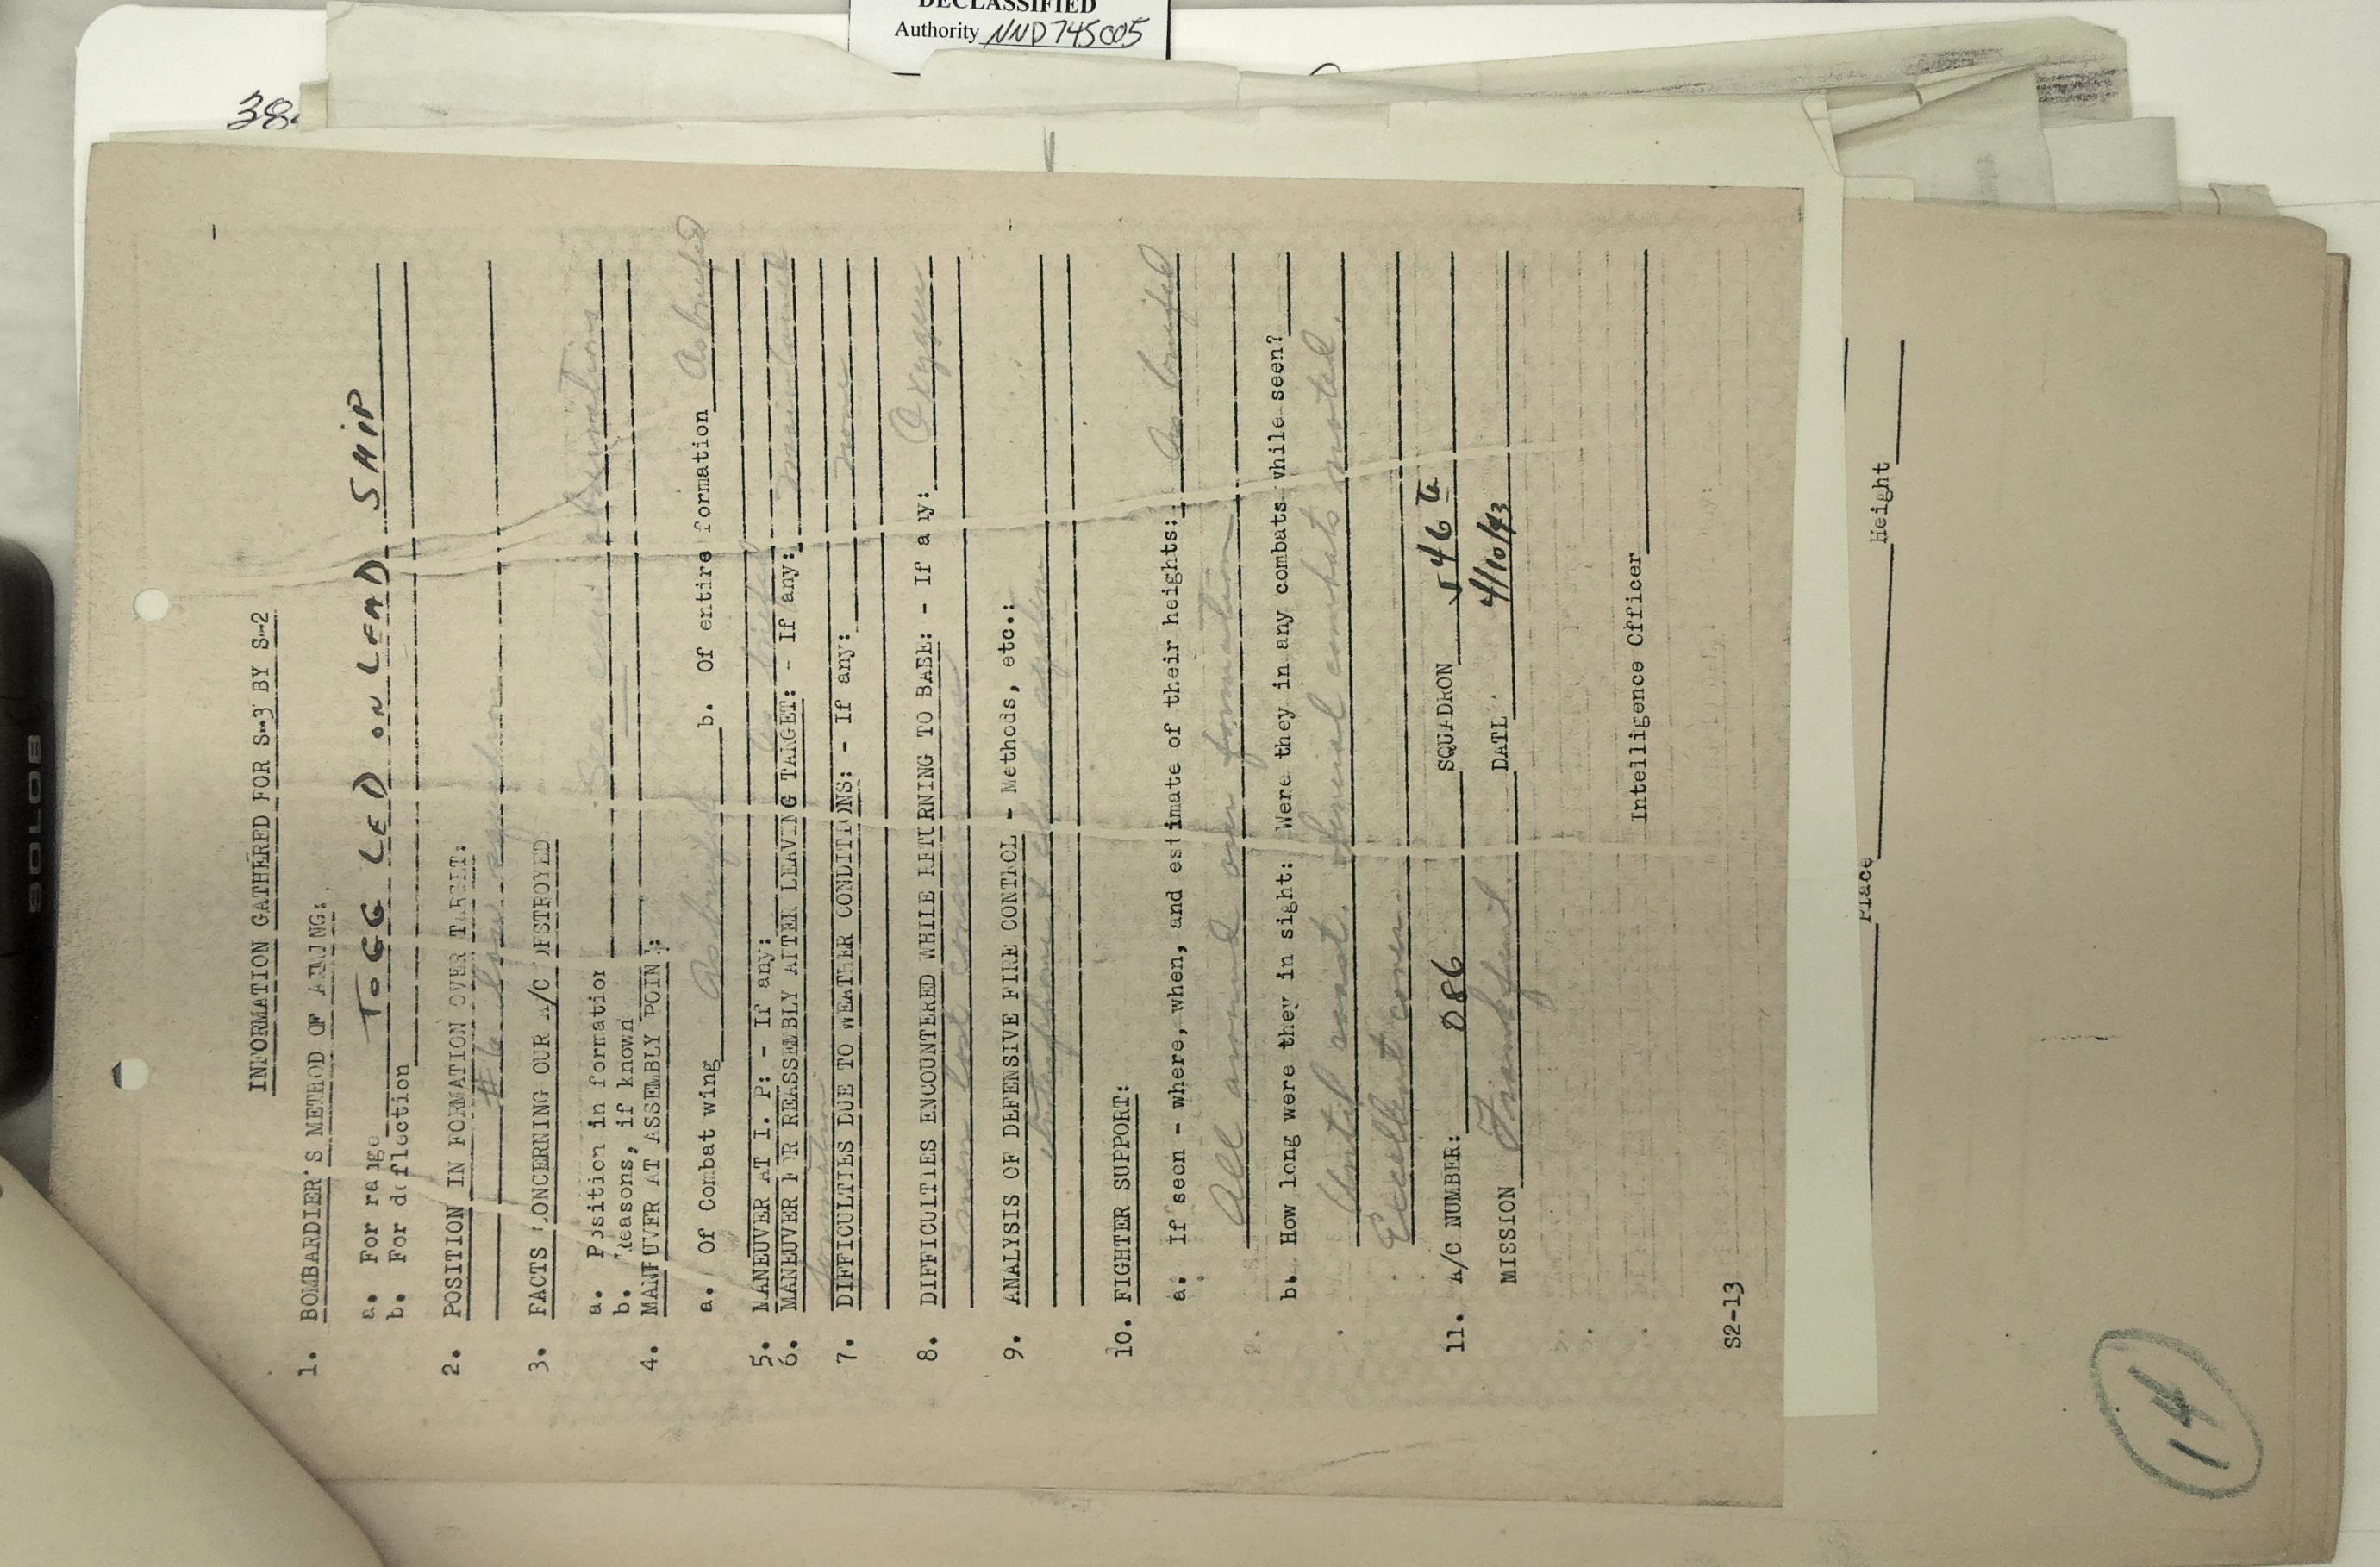 DECLASSIFIED
Authority NND 745005
38
INFORMATION GATHERED FOR S-3 BY S-2
1. BOMBARDIER'S METHOD OF AIMING:
a. For range TOGG LED ON LEAD SHIP
b. For deflection
2. POSITION IN FORMATION OVER TARGET:
#6 squadron
3. FACTS CONCERNING OUR A/C DESTROYED
a. Position in formation See
b. Reasons, if known
4. MANEUVER AT ASSEMBLY POINT:
a. Of Combat wing As briefed b. Of entire formation As briefed
5. MANEUVER AT I. P: - If any:
6. MANEUVER FOR REASSEMBLY AFTER LEAVING TARGET: - If any: maintained
formation
7. DIFFICULTIES DUE TO WEATHER CONDITIONS: - If any: None
8. DIFFICULTIES ENCOUNTERED WHILE RETURNING TO BASE: - If any: Oxygen
9. ANALYSIS OF DEFENSIVE FIRE CONTROL - Methods, etc.:
Interphone &
10. FIGHTER SUPPORT:
a. If seen - where, when, and estimate of their heights: As briefed
All around our formation
b. How long were they in sight: Were they in any combats while seen?
Until coast. Several combats noted.
Excellent cover.
11. A/C NUMBER: 086 SQUADRON 546 th
MISSION Frankfurt DATE 4/10/43
Intelligence Officer
S2-13
Place Height
14
SOLOB